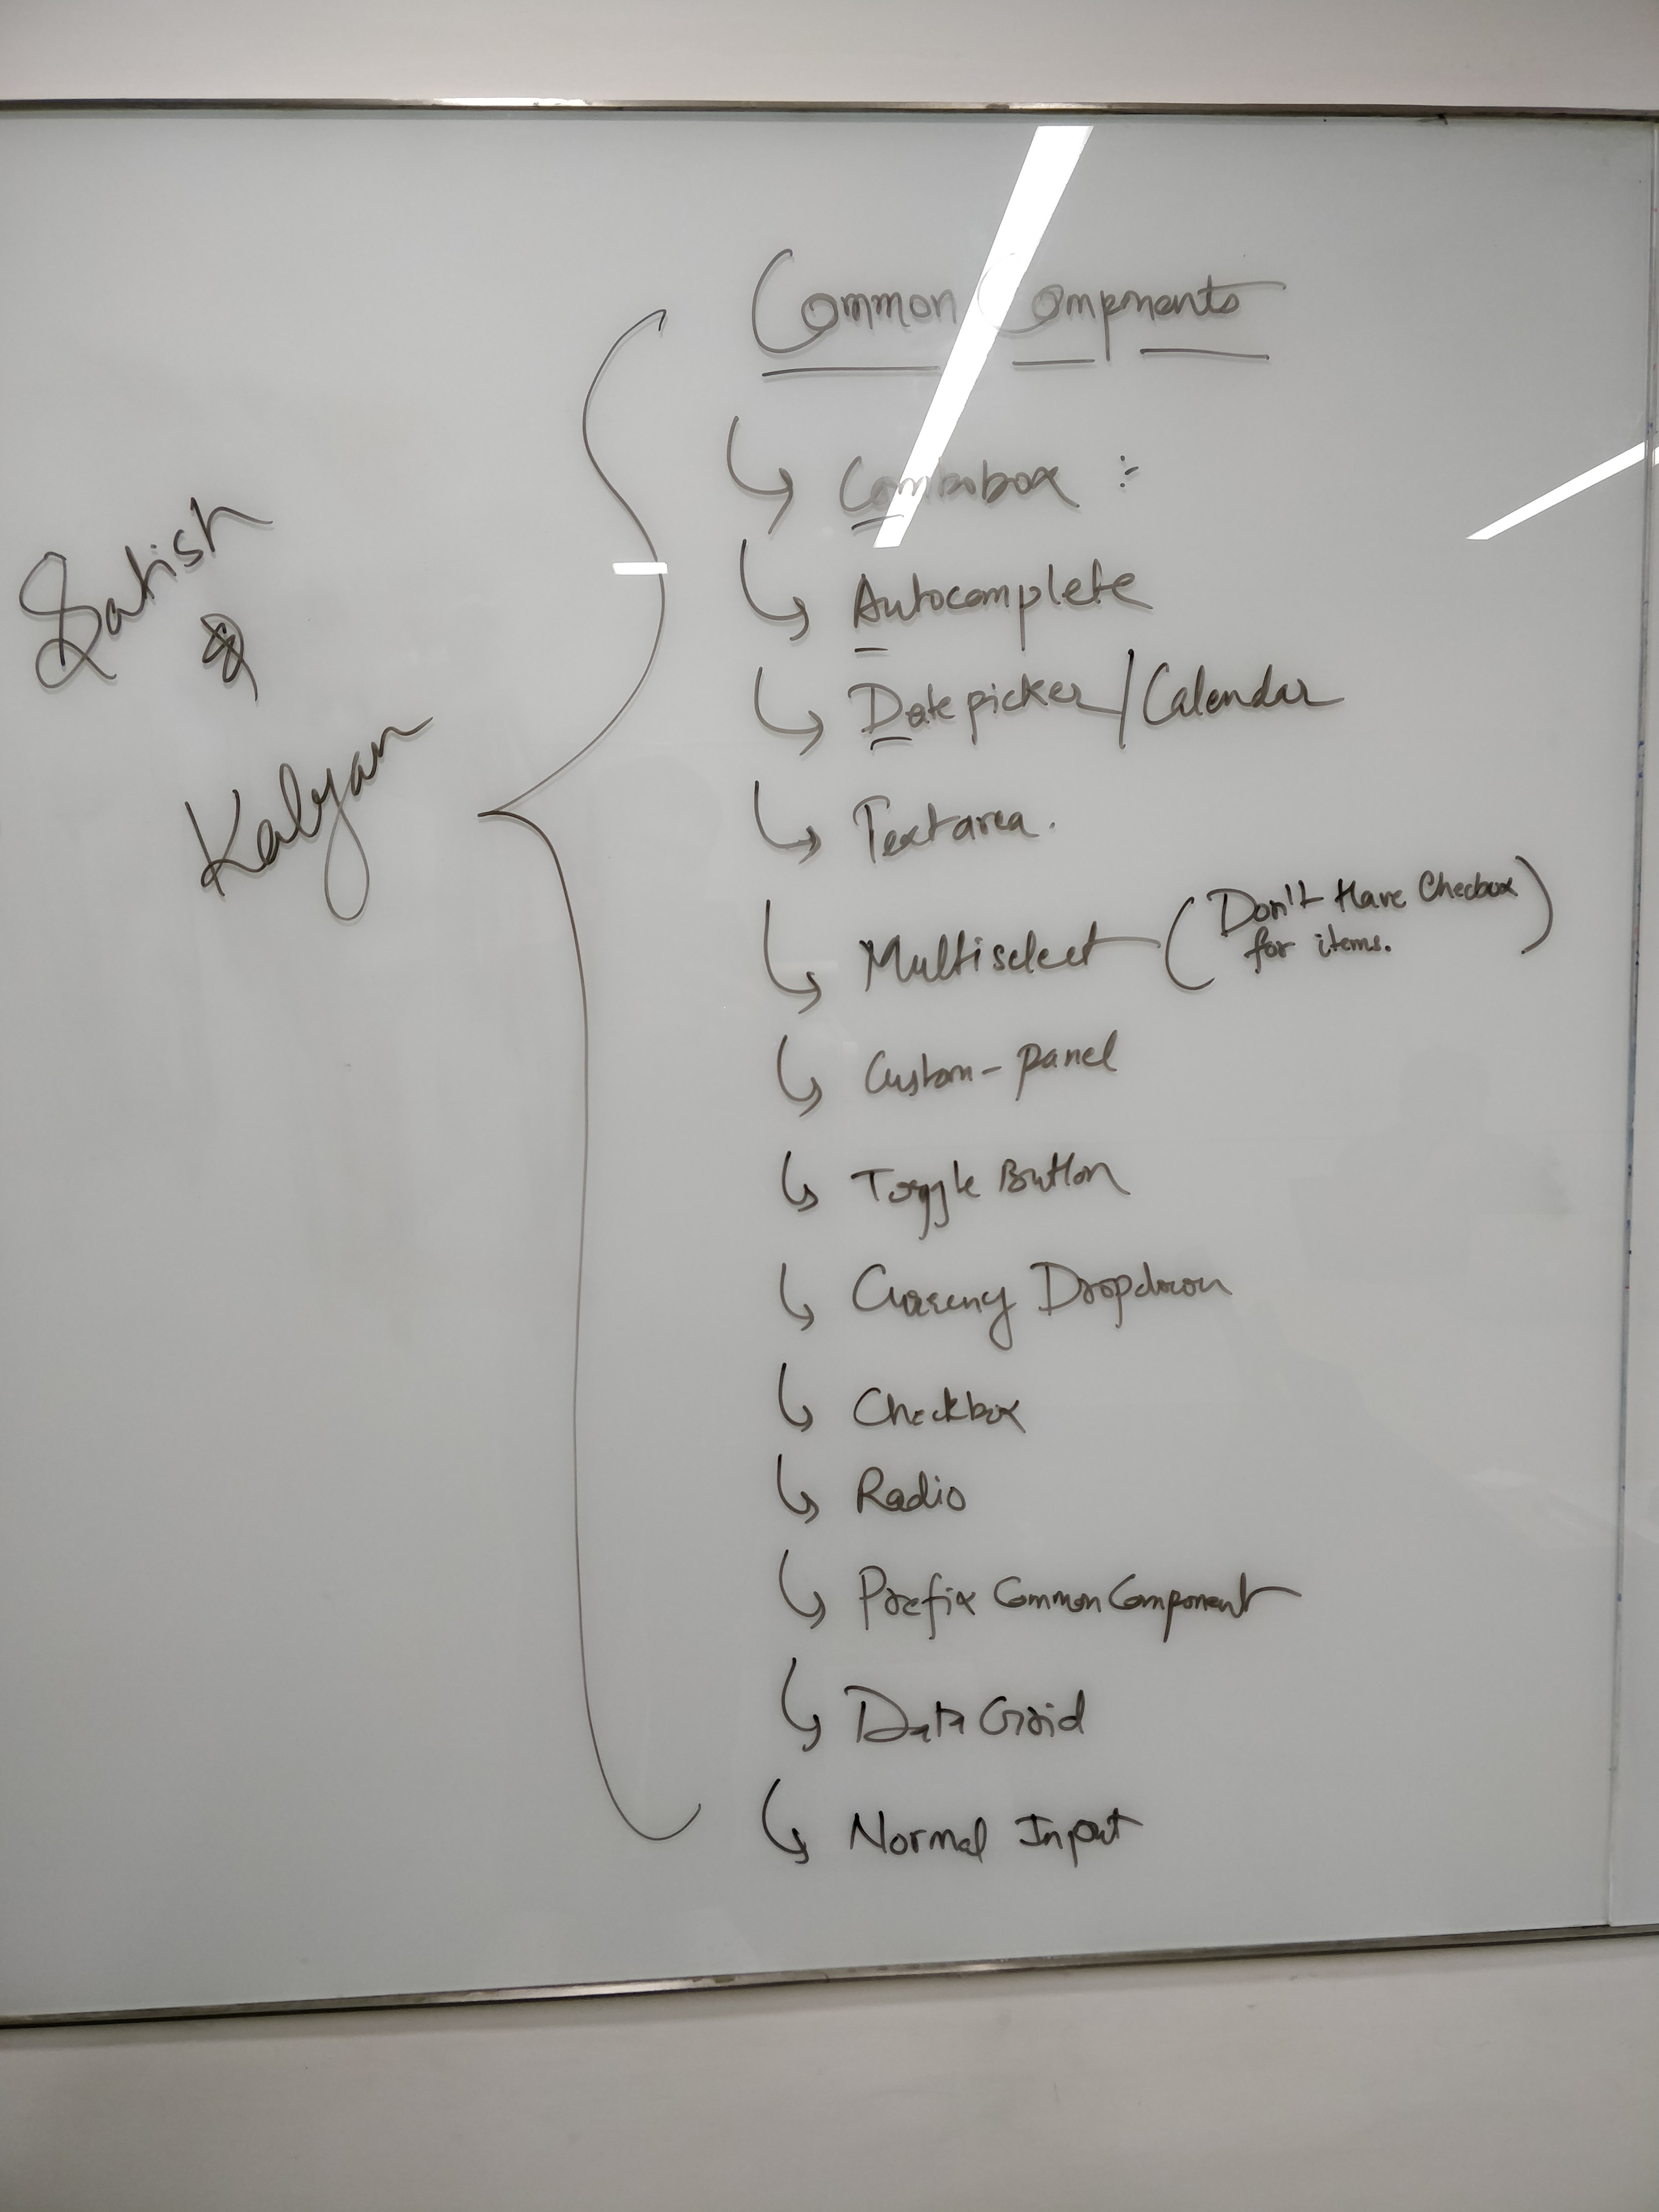 Common Components
Satish
&
Kalyan
Combobox :-
Autocomplete
Datepicker/Calendar
Textarea.
Multiselect (Don't Have Checbox
for items.)
Custom-panel
Toggle Button
Curreny Dropdown
Checkbox
Radio
Prefix Common Component
Data Grid
Normal Input